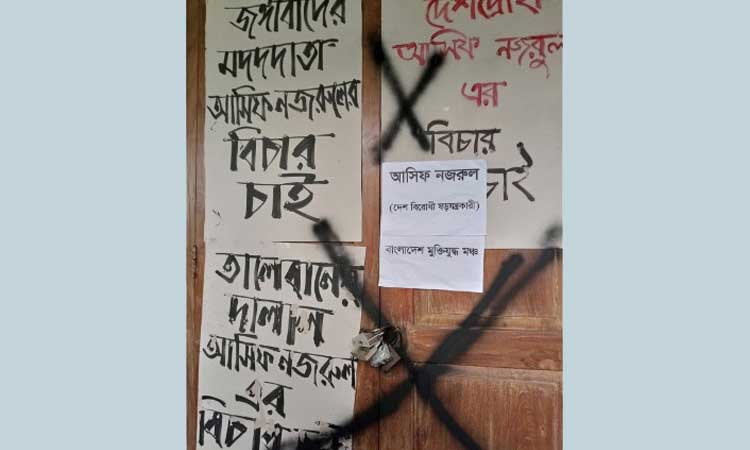 জঙ্গীবাদের
মদদদাতা
আসিফ নজরুলের
বিচার
চাই
দেশদ্রোহী
আসিফ নজরুল
এর
বিচার
চাই
আসিফ নজরুল
(দেশ বিরোধী ষড়যন্ত্রকারী)
বাংলাদেশ মুক্তিযুদ্ধ মঞ্চ
তালেবানের
দালাল
আসিফ নজরুল
এর
বিচার